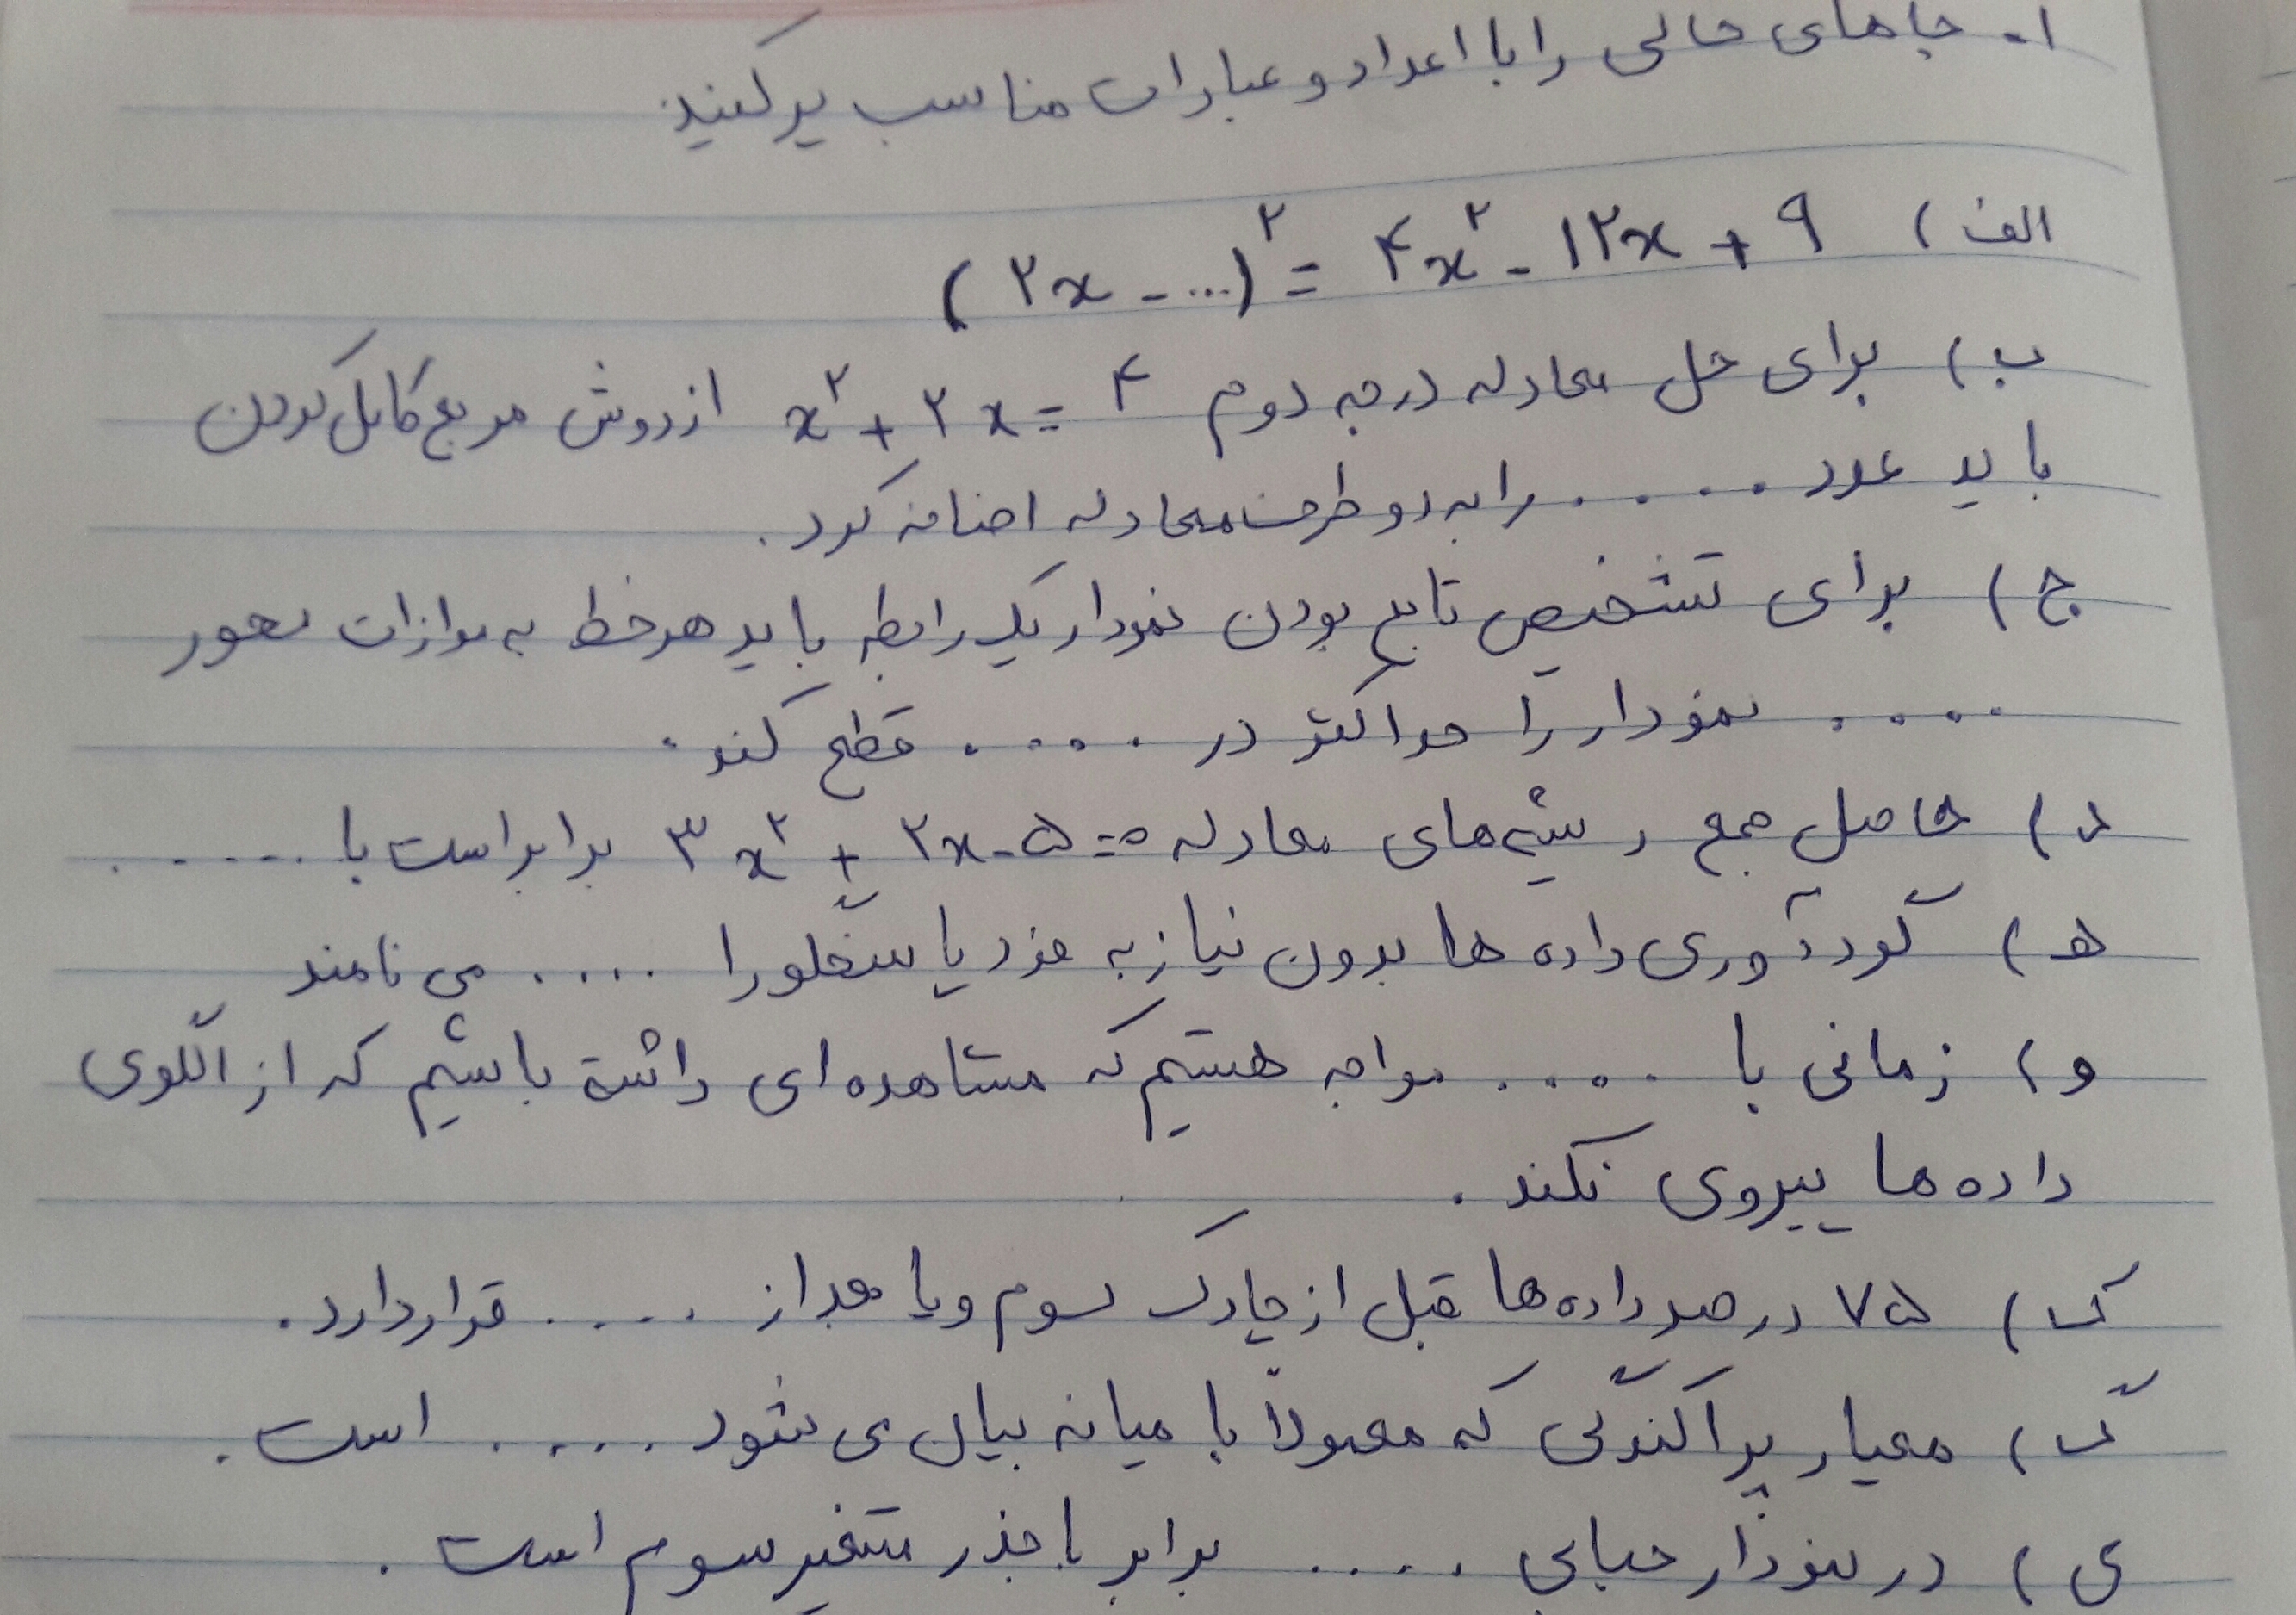 ۱- جاهای خالی را با اعداد و عبارات مناسب پر کنید
الف) (۲x - ...)^۲ = ۴x^۲ - ۱۲x + ۹
ب) برای حل معادله درجه دوم x^۲ + ۲x = ۴ از روش مربع کامل کردن
باید عدد .... را به دو طرف معادله اضافه کرد.
ج) برای تشخیص تابع بودن نمودار یک رابطه باید هر خط به موازات محور
.... نمودار را حداکثر در .... قطع کند.
د) حاصل جمع ریشه‌های معادله ۳x^۲ + ۲x - ۵ = ۰ برابر است با .....
ه) گردآوری داده ها بدون نیاز به فرد پاسخگو را .... می نامند
و) زمانی با .... مواجه هستیم که مشاهده ای داشته باشیم که از الگوی
داده ها پیروی نکند.
ک) ۷۵ درصد داده ها قبل از چارک سوم و یا بعد از .... قرار دارد.
گ) معیار پراکندگی که معمولاً با میانه بیان می شود .... است.
ی) در نمودار حبابی .... برابر با جذر متغیر سوم است.